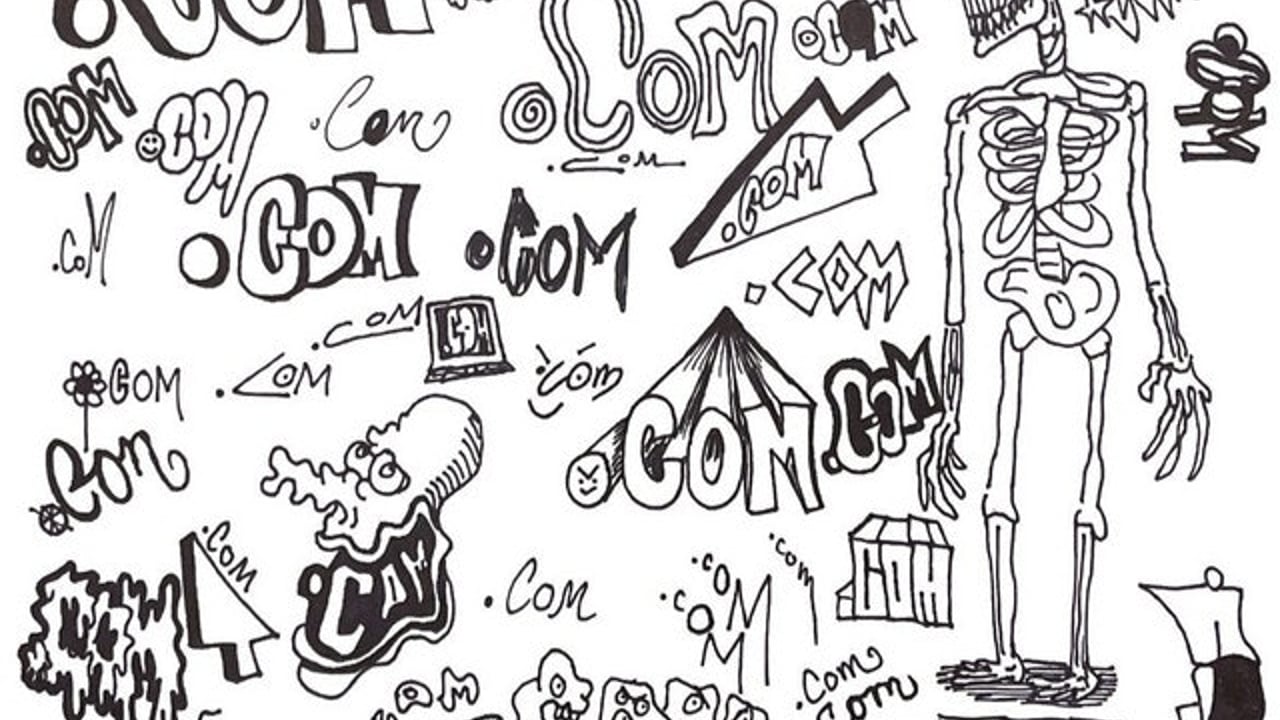 .COM
.COM
.COM
.COM
.COM
.Com
.COM
.CoM
.COM
.COM
.COM
.COM
.COM
.COM
COM
.COM
.COM
.com
COM
.COM
.COM
.Com
.COM
.COM
.Com
.COM
.COM
.com
.Com
.com